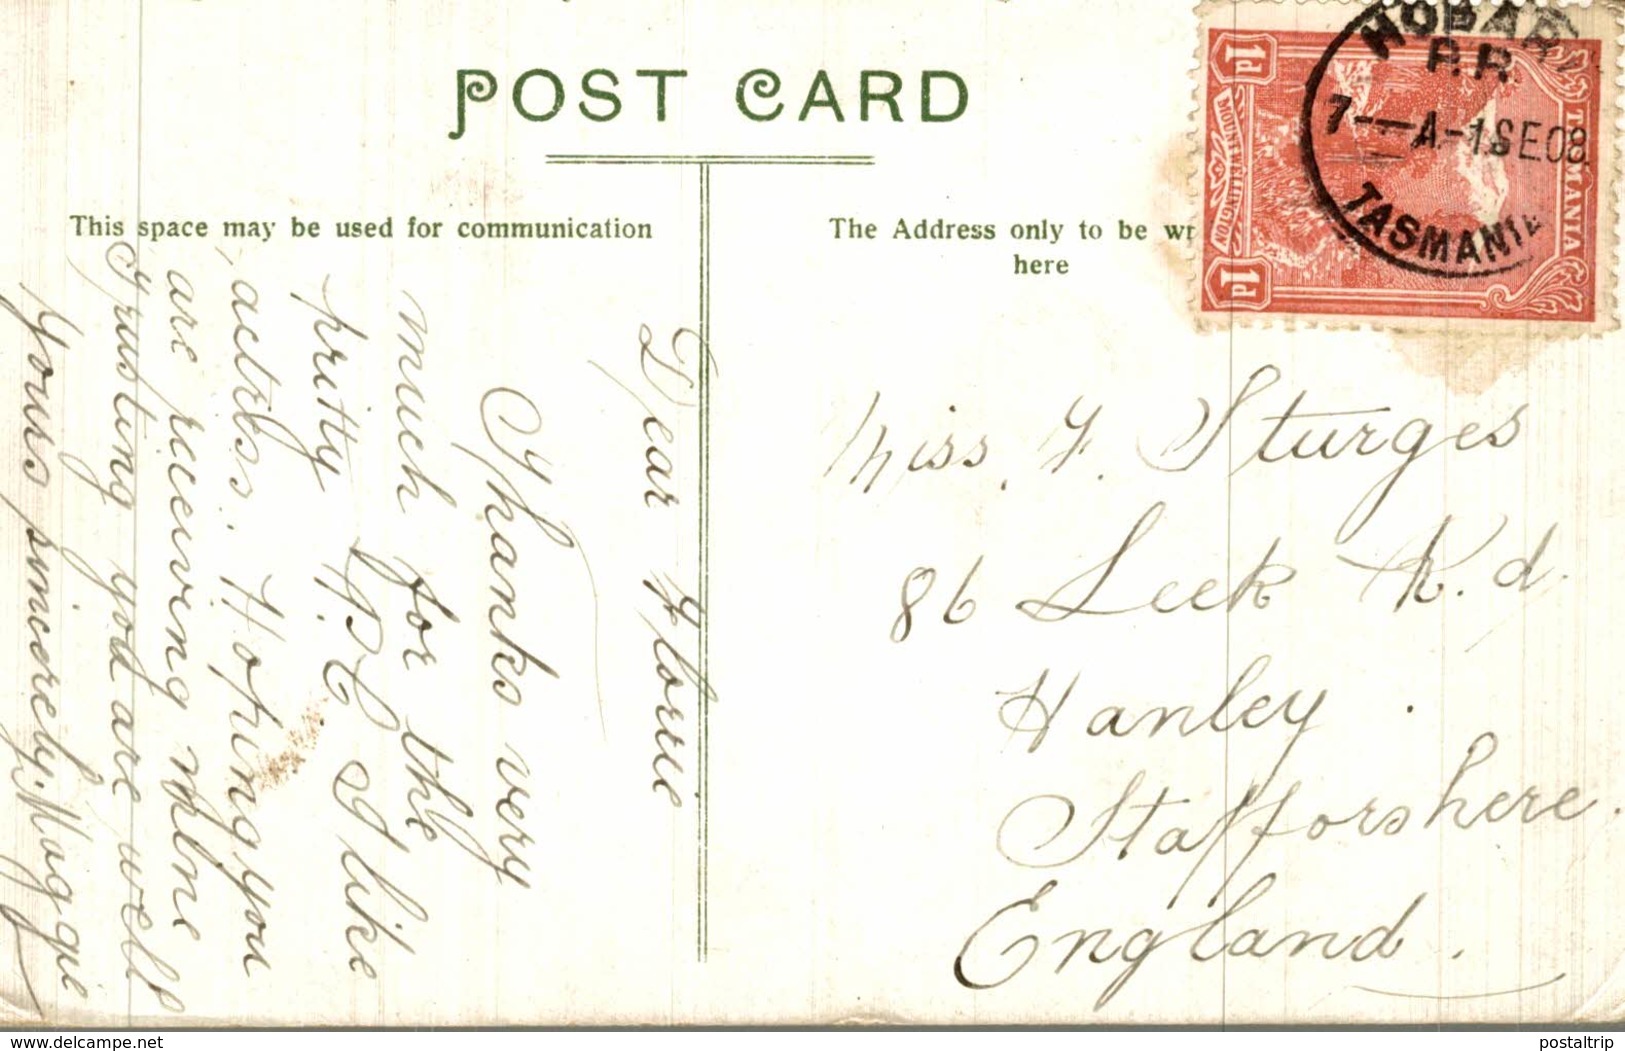 POST CARD
This space may be used for communication
The Address only to be wr
here
HOBART
P.R.
7-A-1SE08
TASMANIA
1d
1d
TASMANIA
MOUNT WELLINGTON
Dear Florrie
Thanks very
much for the
pritty P.P.C I like
actress. Hoping you
are receiving mine
Trusting you are well
Yours sincerely. Maggie
Miss. F. Sturges
86 Leek Rd.
Hanley.
Stafforshere.
England.
delcampe.net
postaltrip